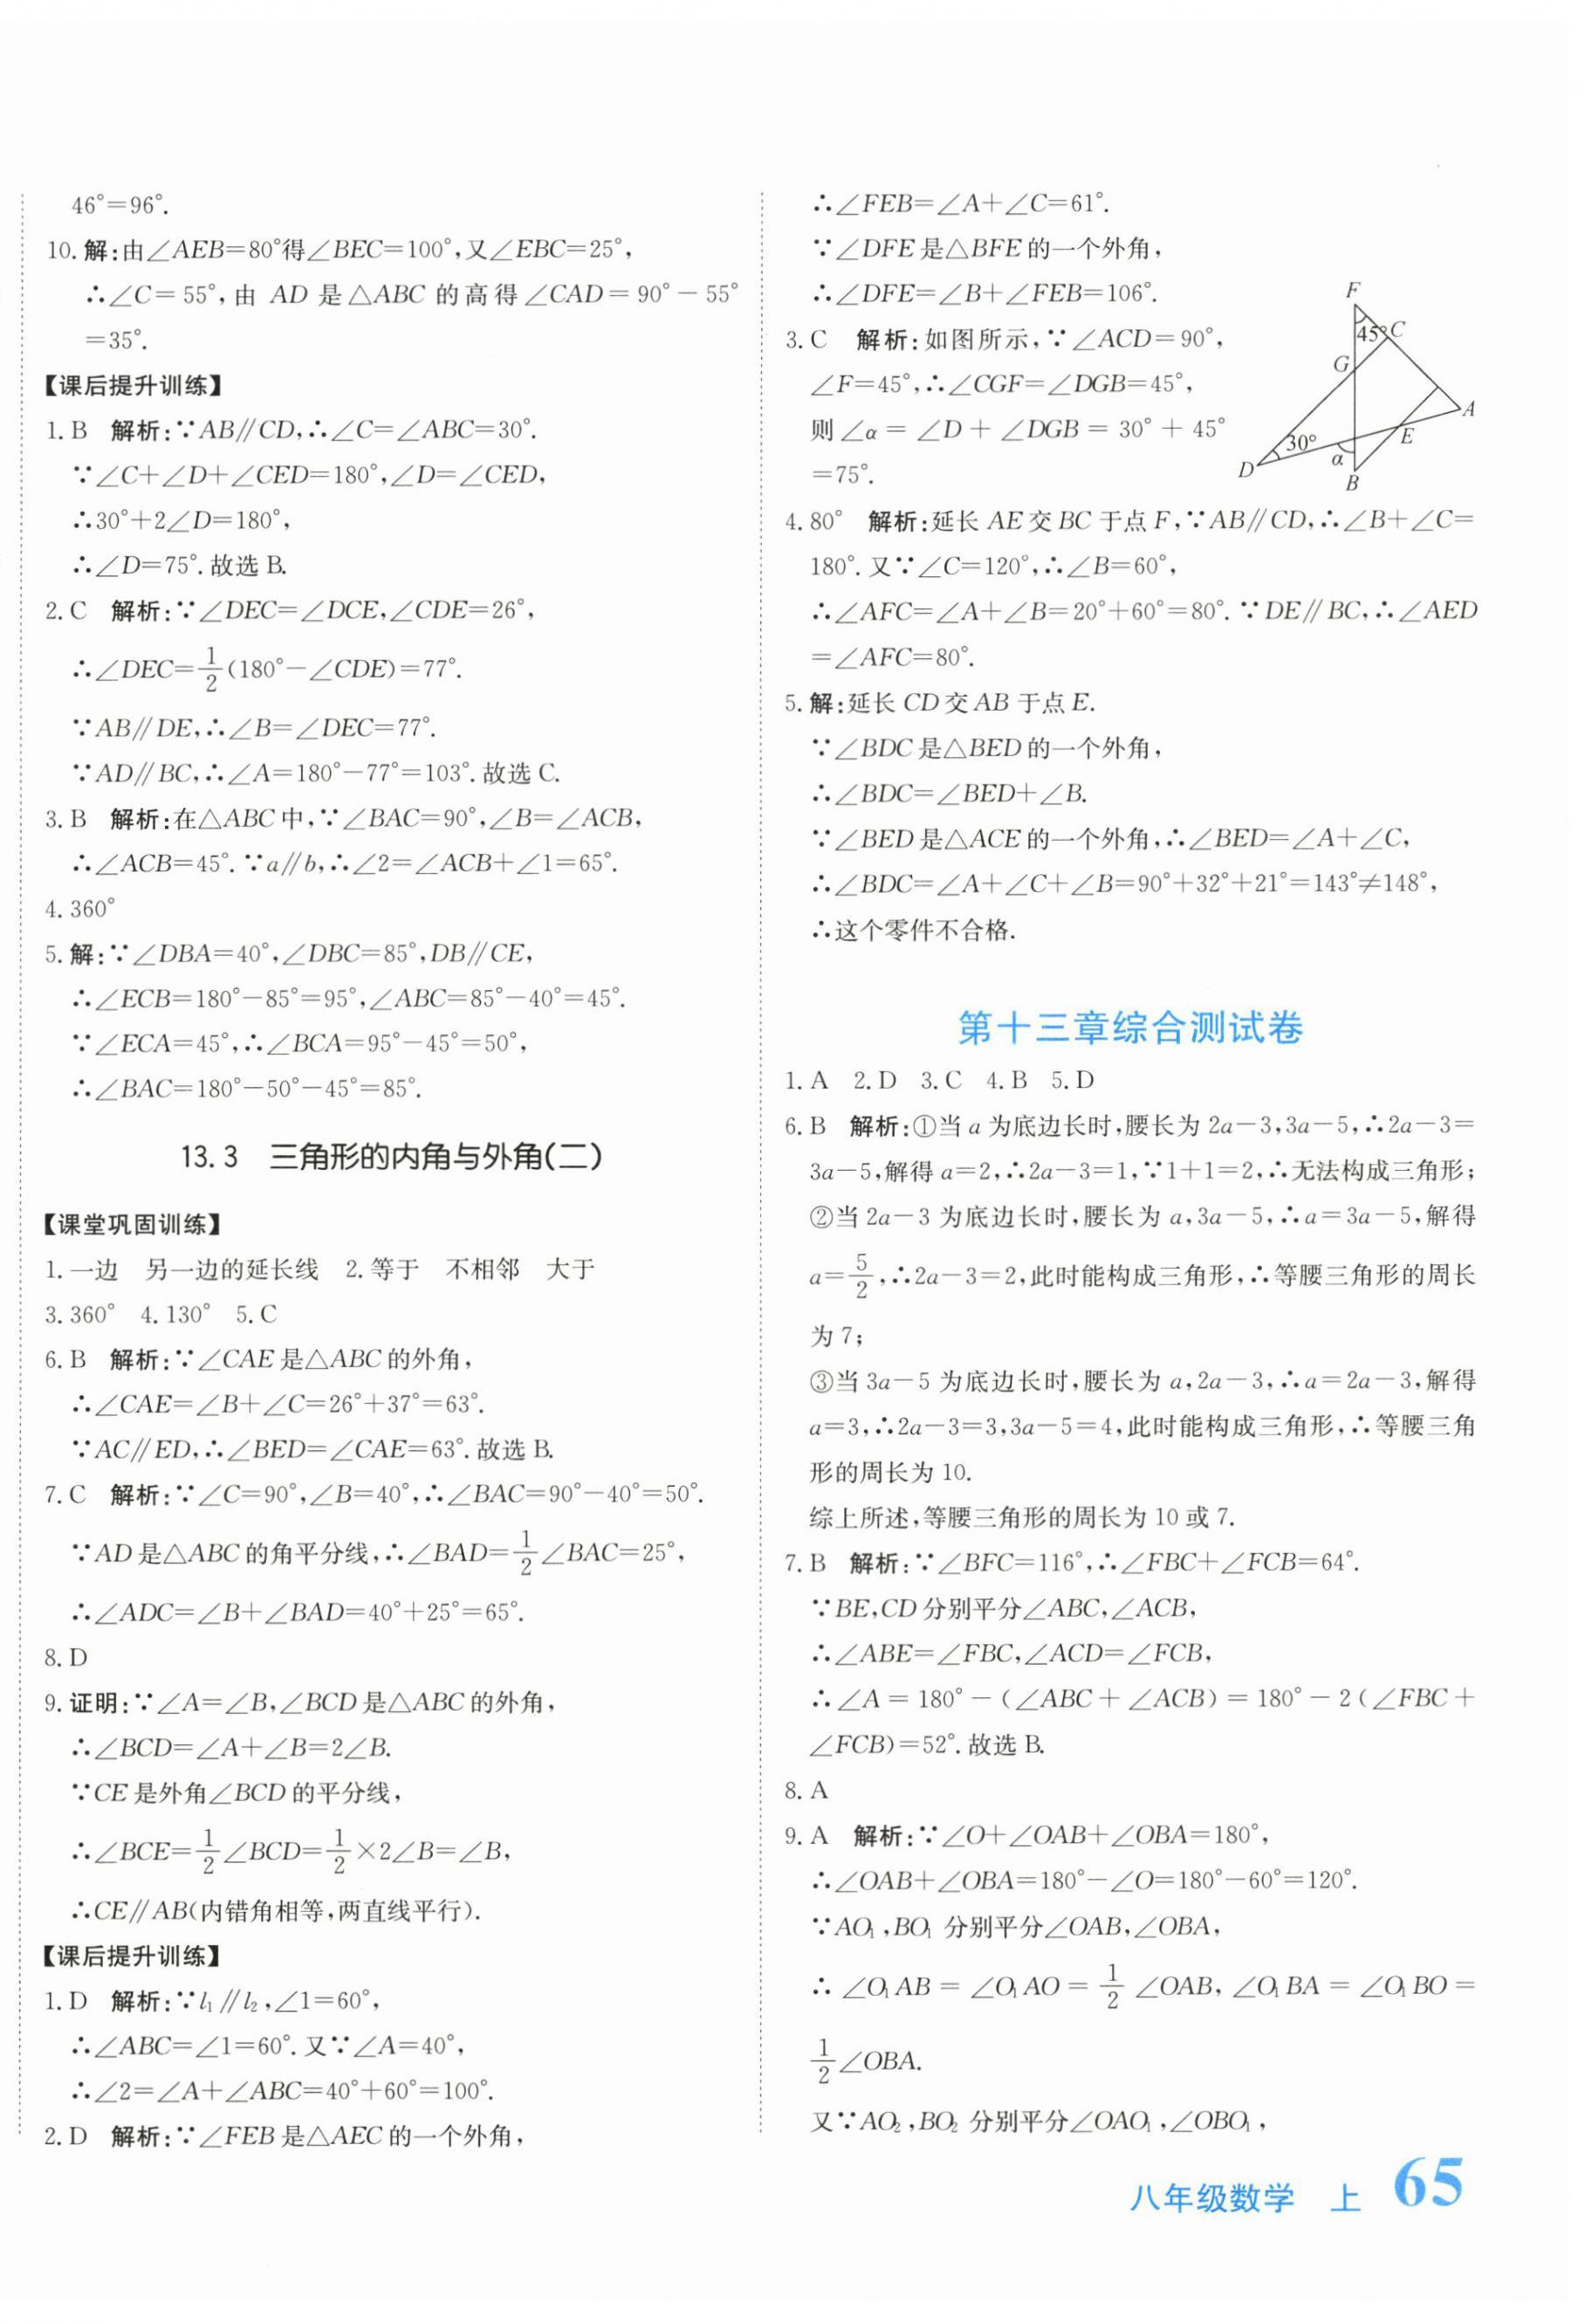 46°=96°.
10. 解:由∠AEB=80°得∠BEC=100°,又∠EBC=25°,
∴∠C=55°,由 AD 是△ABC 的高得∠CAD=90°-55°
=35°.
【课后提升训练】
1. B 解析:∵AB∥CD,∴∠C=∠ABC=30°.
∵∠C+∠D+∠CED=180°,∠D=∠CED,
∴30°+2∠D=180°,
∴∠D=75°.故选 B.
2. C 解析:∵∠DEC=∠DCE,∠CDE=26°,
∴∠DEC=1/2(180°-∠CDE)=77°.
∵AB∥DE,∴∠B=∠DEC=77°.
∵AD∥BC,∴∠A=180°-77°=103°.故选 C.
3. B 解析:在△ABC 中,∵∠BAC=90°,∠B=∠ACB,
∴∠ACB=45°.∵a∥b,∴∠2=∠ACB+∠1=65°.
4. 360°
5. 解:∵∠DBA=40°,∠DBC=85°,DB∥CE,
∴∠ECB=180°-85°=95°,∠ABC=85°-40°=45°.
∵∠ECA=45°,∴∠BCA=95°-45°=50°,
∴∠BAC=180°-50°-45°=85°.
13.3 三角形的内角与外角(二)
【课堂巩固训练】
1. 一边 另一边的延长线 2. 等于 不相邻 大于
3. 360° 4. 130° 5. C
6. B 解析:∵∠CAE 是△ABC 的外角,
∴∠CAE=∠B+∠C=26°+37°=63°.
∵AC∥ED,∴∠BED=∠CAE=63°.故选 B.
7. C 解析:∵∠C=90°,∠B=40°,∴∠BAC=90°-40°=50°.
∵AD 是△ABC 的角平分线,∴∠BAD=1/2∠BAC=25°,
∴∠ADC=∠B+∠BAD=40°+25°=65°.
8. D
9. 证明:∵∠A=∠B,∠BCD 是△ABC 的外角,
∴∠BCD=∠A+∠B=2∠B.
∵CE 是外角∠BCD 的平分线,
∴∠BCE=1/2∠BCD=1/2×2∠B=∠B,
∴CE∥AB(内错角相等,两直线平行).
【课后提升训练】
1. D 解析:∵l₁∥l₂,∠1=60°,
∴∠ABC=∠1=60°.又∵∠A=40°,
∴∠2=∠A+∠ABC=40°+60°=100°.
2. D 解析:∵∠FEB 是△AEC 的一个外角,
∴∠FEB=∠A+∠C=61°.
∵∠DFE 是△BFE 的一个外角,
∴∠DFE=∠B+∠FEB=106°.
3. C 解析:如图所示,∵∠ACD=90°,
∠F=45°,∴∠CGF=∠DGB=45°,
则∠α=∠D+∠DGB=30°+45°
=75°.
F
45°
C
G
A
E
30°
D
α
B
4. 80° 解析:延长 AE 交 BC 于点 F,∵AB∥CD,∴∠B+∠C=
180°.又∵∠C=120°,∴∠B=60°,
∴∠AFC=∠A+∠B=20°+60°=80°.∵DE∥BC,∴∠AED
=∠AFC=80°.
5. 解:延长 CD 交 AB 于点 E.
∵∠BDC 是△BED 的一个外角,
∴∠BDC=∠BED+∠B.
∵∠BED 是△ACE 的一个外角,∴∠BED=∠A+∠C,
∴∠BDC=∠A+∠C+∠B=90°+32°+21°=143°≠148°,
∴这个零件不合格.
第十三章综合测试卷
1. A 2. D 3. C 4. B 5. D
6. B 解析:①当 a 为底边长时,腰长为 2a-3,3a-5,∴2a-3=
3a-5,解得 a=2,∴2a-3=1,∵1+1=2,∴无法构成三角形;
②当 2a-3 为底边长时,腰长为 a,3a-5,∴a=3a-5,解得
a=5/2,∴2a-3=2,此时能构成三角形,∴等腰三角形的周长
为 7;
③当 3a-5 为底边长时,腰长为 a,2a-3,∴a=2a-3,解得
a=3,∴2a-3=3,3a-5=4,此时能构成三角形,∴等腰三角
形的周长为 10.
综上所述,等腰三角形的周长为 10 或 7.
7. B 解析:∵∠BFC=116°,∴∠FBC+∠FCB=64°.
∵BE,CD 分别平分∠ABC,∠ACB,
∴∠ABE=∠FBC,∠ACD=∠FCB,
∴∠A=180°-(∠ABC+∠ACB)=180°-2(∠FBC+
∠FCB)=52°.故选 B.
8. A
9. A 解析:∵∠O+∠OAB+∠OBA=180°,
∴∠OAB+∠OBA=180°-∠O=180°-60°=120°.
∵AO₁,BO₁ 分别平分∠OAB,∠OBA,
∴∠O₁AB=∠O₁AO=1/2∠OAB,∠O₁BA=∠O₁BO=
1/2∠OBA.
又∵AO₂,BO₂ 分别平分∠OAO₁,∠OBO₁,
八年级数学 上 65